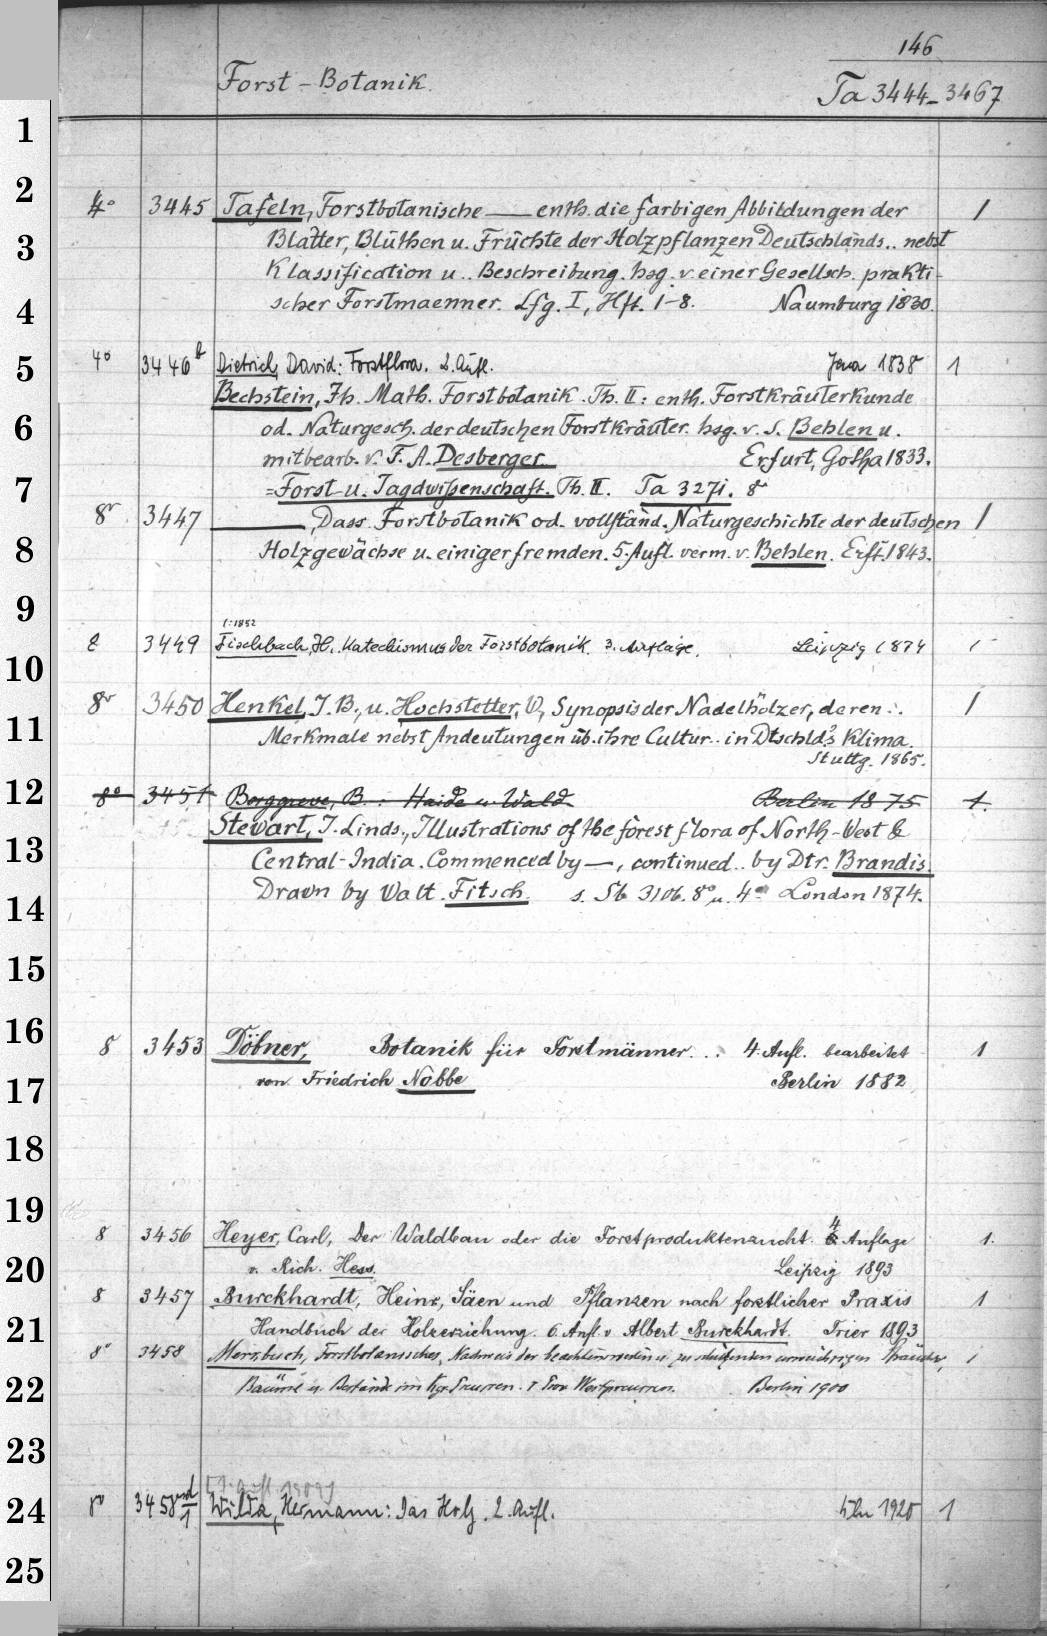 146
Forst-Botanik. Ta 3444-3467
1
2
4° 3445 Tafeln, Forstbotanische — enth. die farbigen Abbildungen der 1
3
Blätter, Blüthen u. Früchte der Holzpflanzen Deutschlands.. nebst
Klassification u.. Beschreibung. hsg. v. einer Gesellsch. prakti-
4
scher Forstmaenner. Lfg. I, Hft. 1-8. Naumburg 1830.
5
4° 3446 b Dietrich, David: Forstflora. 2. Aufl. Jena 1838 1
Bechstein, Jh. Math. Forstbotanik. Th. II: enth. Forstkräuterkunde
6
od. Naturgesch. der deutschen Forstkräuter. hsg. v. S. Behlen u.
mitbearb. v. F. A. Desberger. Erfurt, Gotha 1833.
7
=Forst- u. Jagdwißenschaft. Th. II. Ta 3271. 8°
8° 3447 — , Dass. Forstbotanik od. vollständ. Naturgeschichte der deutschen 1
8
Holzgewächse u. einiger fremden. 5. Aufl. verm. v. Behlen. Erft. 1843.
9
1:1852
8 3449 Fischbach, H., Katechismus der Forstbotanik. 3. Auflage. Leipzig 1874 1
10
8° 3450 Henkel, J. B., u. Hochstetter, W, Synopsis der Nadelhölzer, deren.. 1
11
Merkmale nebst Andeutungen üb. ihre Cultur.. in Dtschld's Klima.
Stuttg. 1865.
12
8° 3451 Borggreve, B.: Haide u. Wald Berlin 1875 1.
Stewart, J. Linds., Illustrations of the forest flora of North-West &
13
Central-India. Commenced by —, continued.. by Dtr. Brandis.
Drawn by Walt. Fitsch. s. Sb 3106. 8° u. 4° London 1874.
14
15
16
8 3453 Döbner, Botanik für Forstmänner... 4. Aufl. bearbeitet 1
von Friedrich Nobbe Berlin 1882
17
18
19
8 3456 Heyer, Carl, Der Waldbau oder die Forstproduktenzucht. 4 Auflage 1.
20
v. Rich. Hess. Leipzig 1893
8 3457 Burckhardt, Heinr., Säen und Pflanzen nach forstlicher Praxis 1
21
Handbuch der Holzerziehung. 6. Aufl. v. Albert Burckhardt. Trier 1893
8° 3458 Merkbuch, Forstbotanisches, Nachweis der beachtenswerten u. zu schützenden urwüchsigen Sträucher, 1
22
Bäume u. Bestände im Kgr. Preussen. I Prov. Westpreussen. Berlin 1900
23
24
8° 3458 1 Wilda, Hermann: Das Holz. 2. Aufl. Bln 1920 1
25